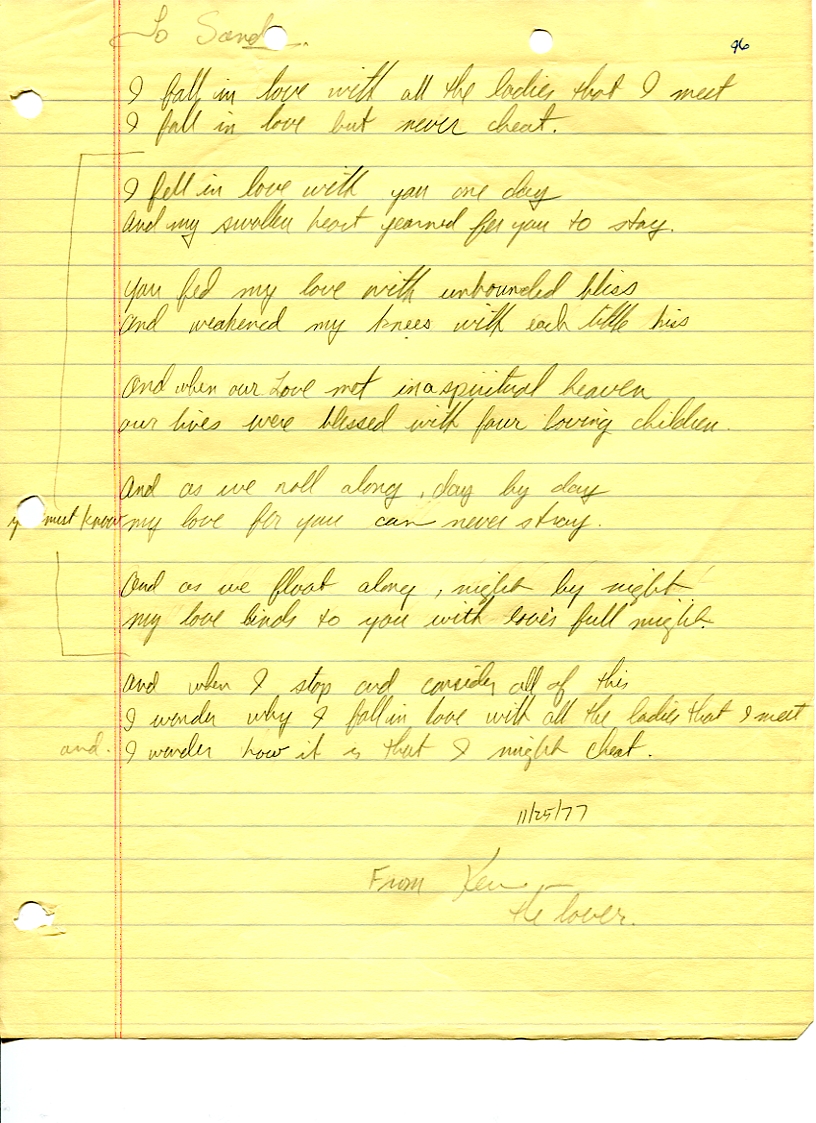 To Sand
96
I fall in love with all the ladies that I meet
I fall in love but never cheat.
I fell in love with you one day
and my swollen heart yearned for you to stay.
you fed my love with unbounded bliss
and weakened my knees with each little kiss
and when our Love met in a spiritual heaven
our lives were blessed with four loving children.
and as we roll along, day by day
y must know my love for you can never stray.
and as we float along, night by night
my love binds to you with love's full might.
and when I stop and consider all of this
I wonder why I fall in love with all the ladies that I meet
and I wonder how it is that I might cheat.
11/25/77
From Ken
the lover.